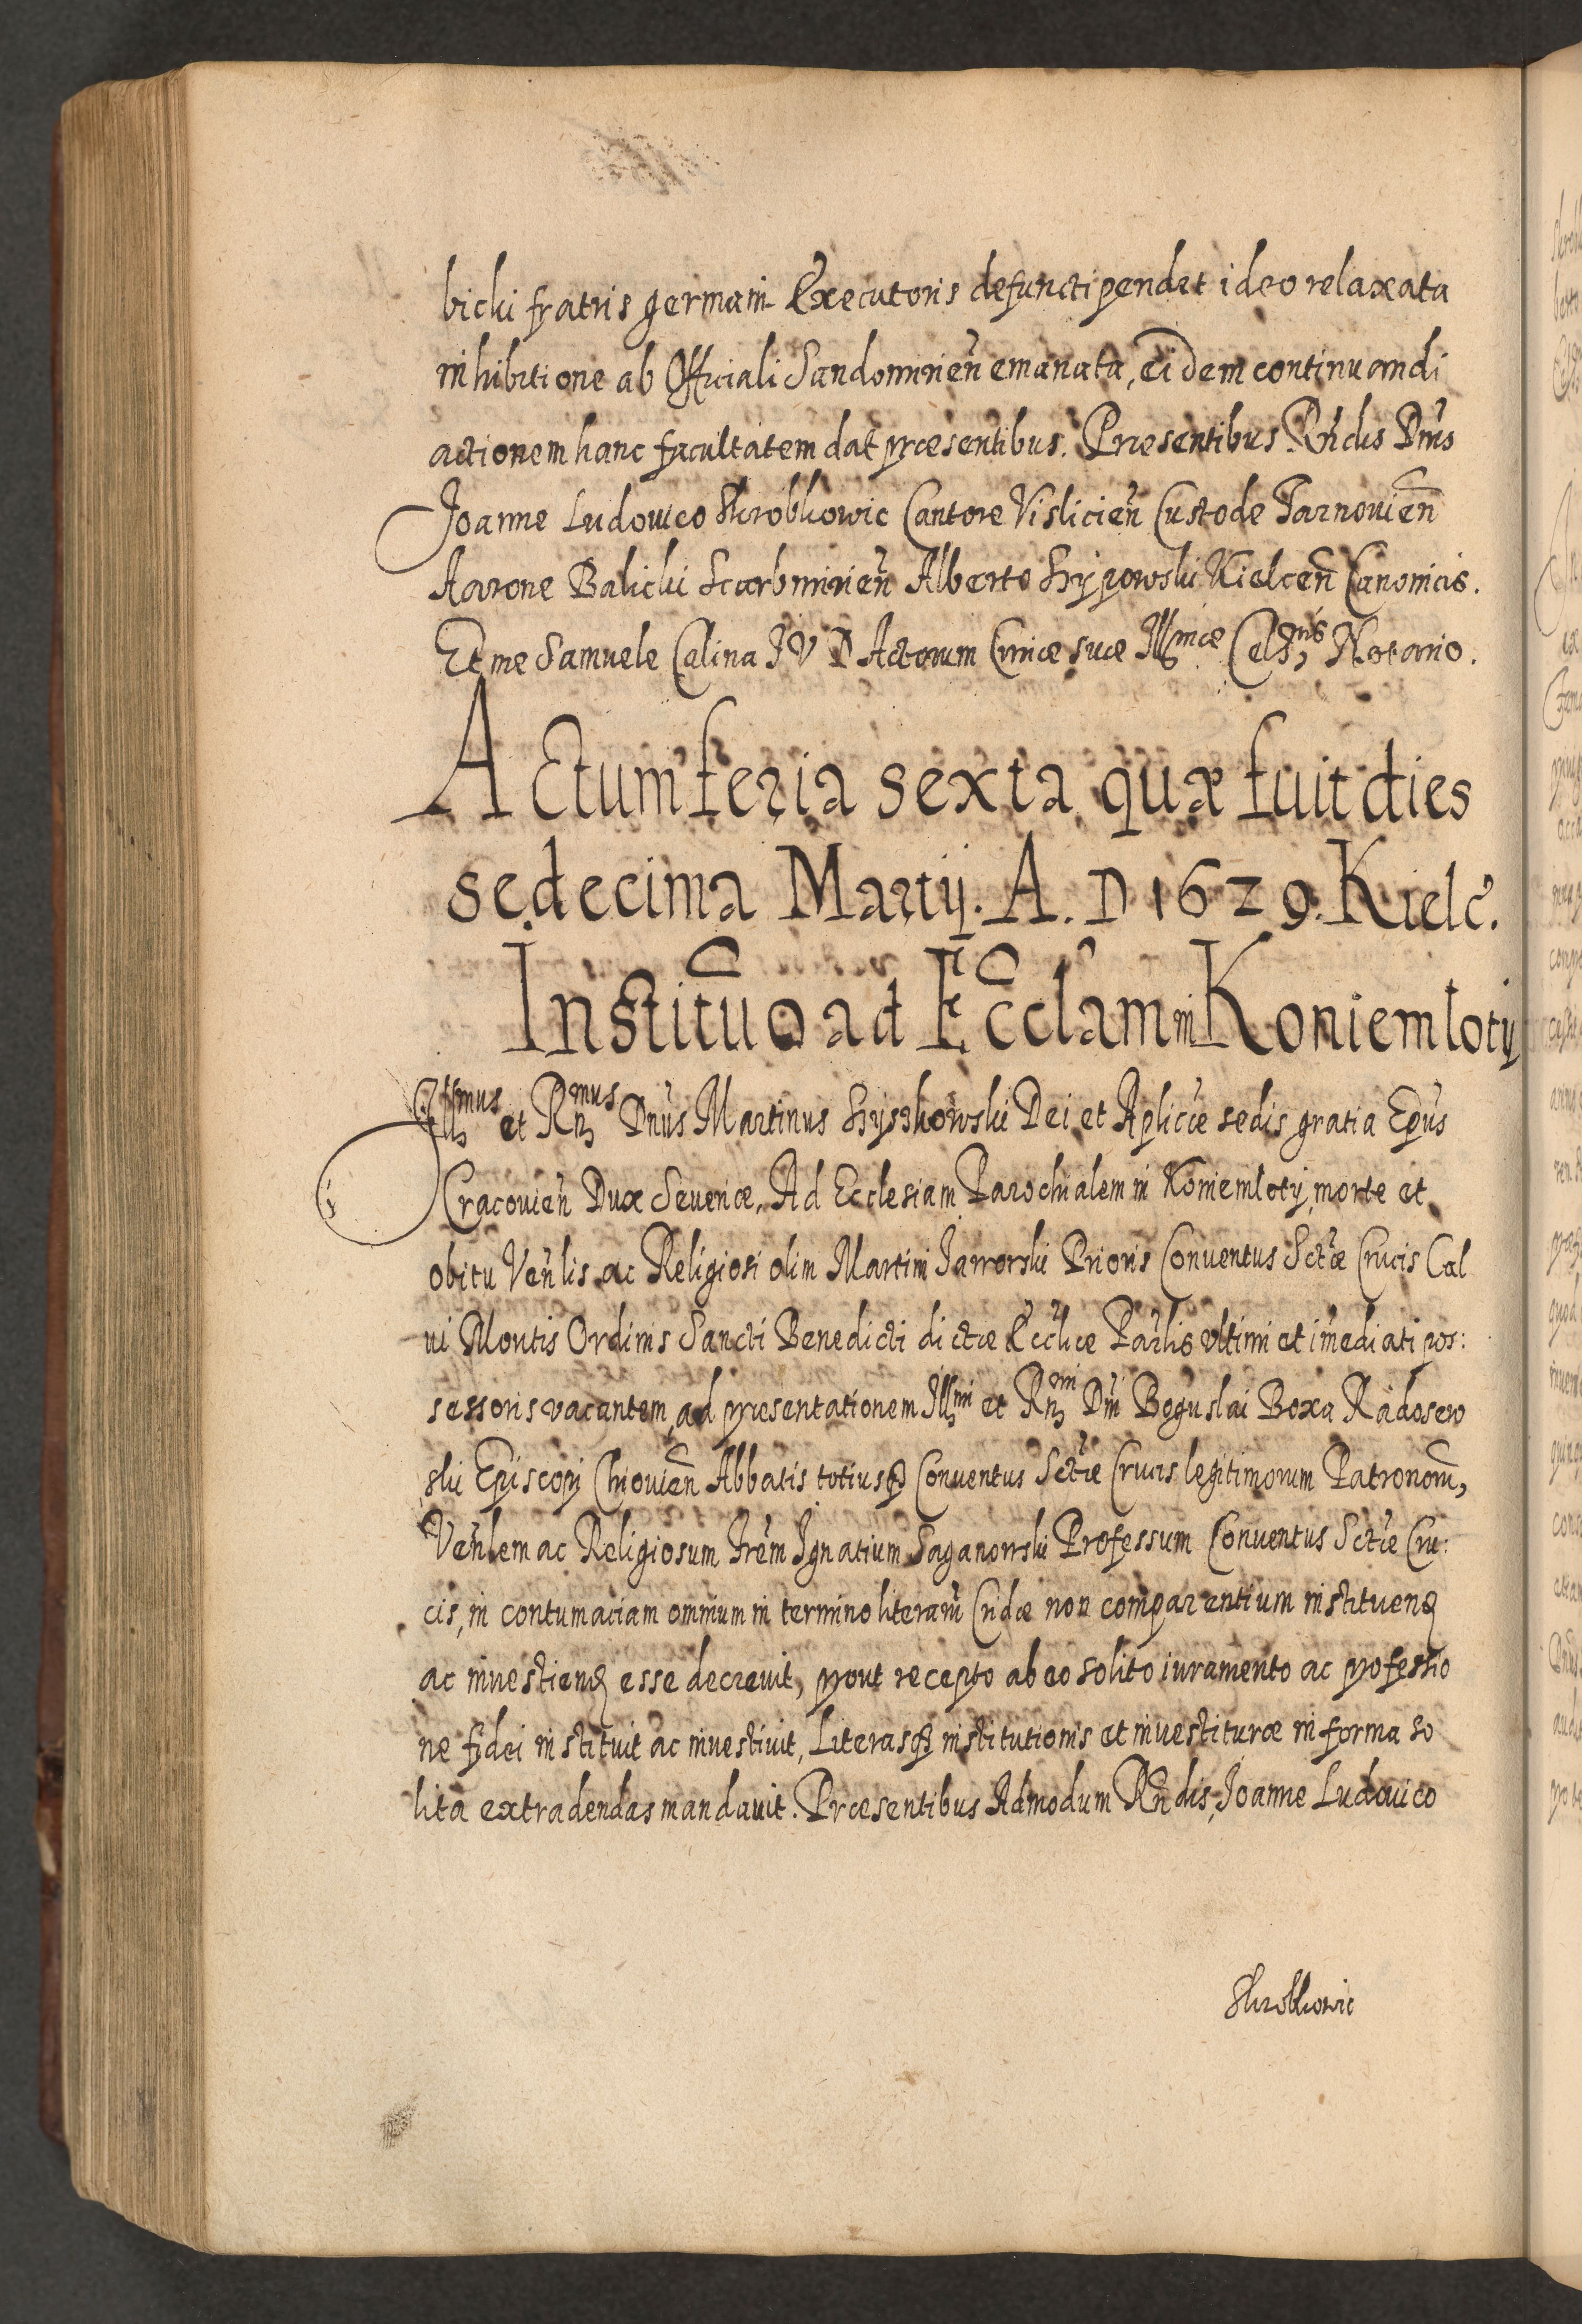 bicki fratris germani Executoris defuncti pendet ideo relaxata
inhibitione ab Officiali Sandomirien̄ emanata, eidem continuandi
actionem hanc facultatem dat præsentibus. Præsentibus Rn̄dis Dn̄is
Joanne Ludovico Skrobkowic Cantore Vislicien̄ Custode Tarnovien̄
Aarone Balicki Scarbimirien̄ Alberto Lipowski Kielcen̄ Canonicis.
Et me Samuele Calina J V D Actorum Curiæ suæ Illmæ Celsnis Notario.
Actum feria sexta quæ fuit dies
sedecima Martij. A. D 1629. Kielc̄.
Institūo ad Ecc̄lam in Koniemloty
Illmus et Rn̄mus Dn̄us Martinus Szyszkowski Dei et Ap̄licæ sedis gratia Ep̄us
Cracovien̄ Dux Severiæ, Ad Ecclesiam Parochialem in Koniemloty, morte et
obitu Ven̄lis ac Religiosi olim Martini Jaworski Prioris Conventus Sctæ Crucis Cal
vi Montis Ordinis Sancti Benedicti dictæ Eccl̄iæ Par̄lis ultimi et im̄ediati pos:
sessoris vacantem, ad præsentationem Illmi et Rn̄mi Dn̄i Boguslai Boxa Radosew
ski Episcopi Chiovien̄ Abbatis totiusq3 Conventus Sctæ Crucis legitimorum Patronor̄u,
Ven̄lem ac Religiosum Fr̄em Ignatium Saganowski Professum Conventus Sctæ Cru:
cis, in contumaciam omnium in termino literaru̅ Cridæ non comparentium instituend
ac investiend esse decrevit, prout recepto ab eo solito iuramento ac professio
ne fidei instituit ac investivit, Literasq3 institutionis et investituræ in forma so
lita extradendas mandavit. Præsentibus Admodum Rn̄dis, Joanne Ludovico
Skrobkowic